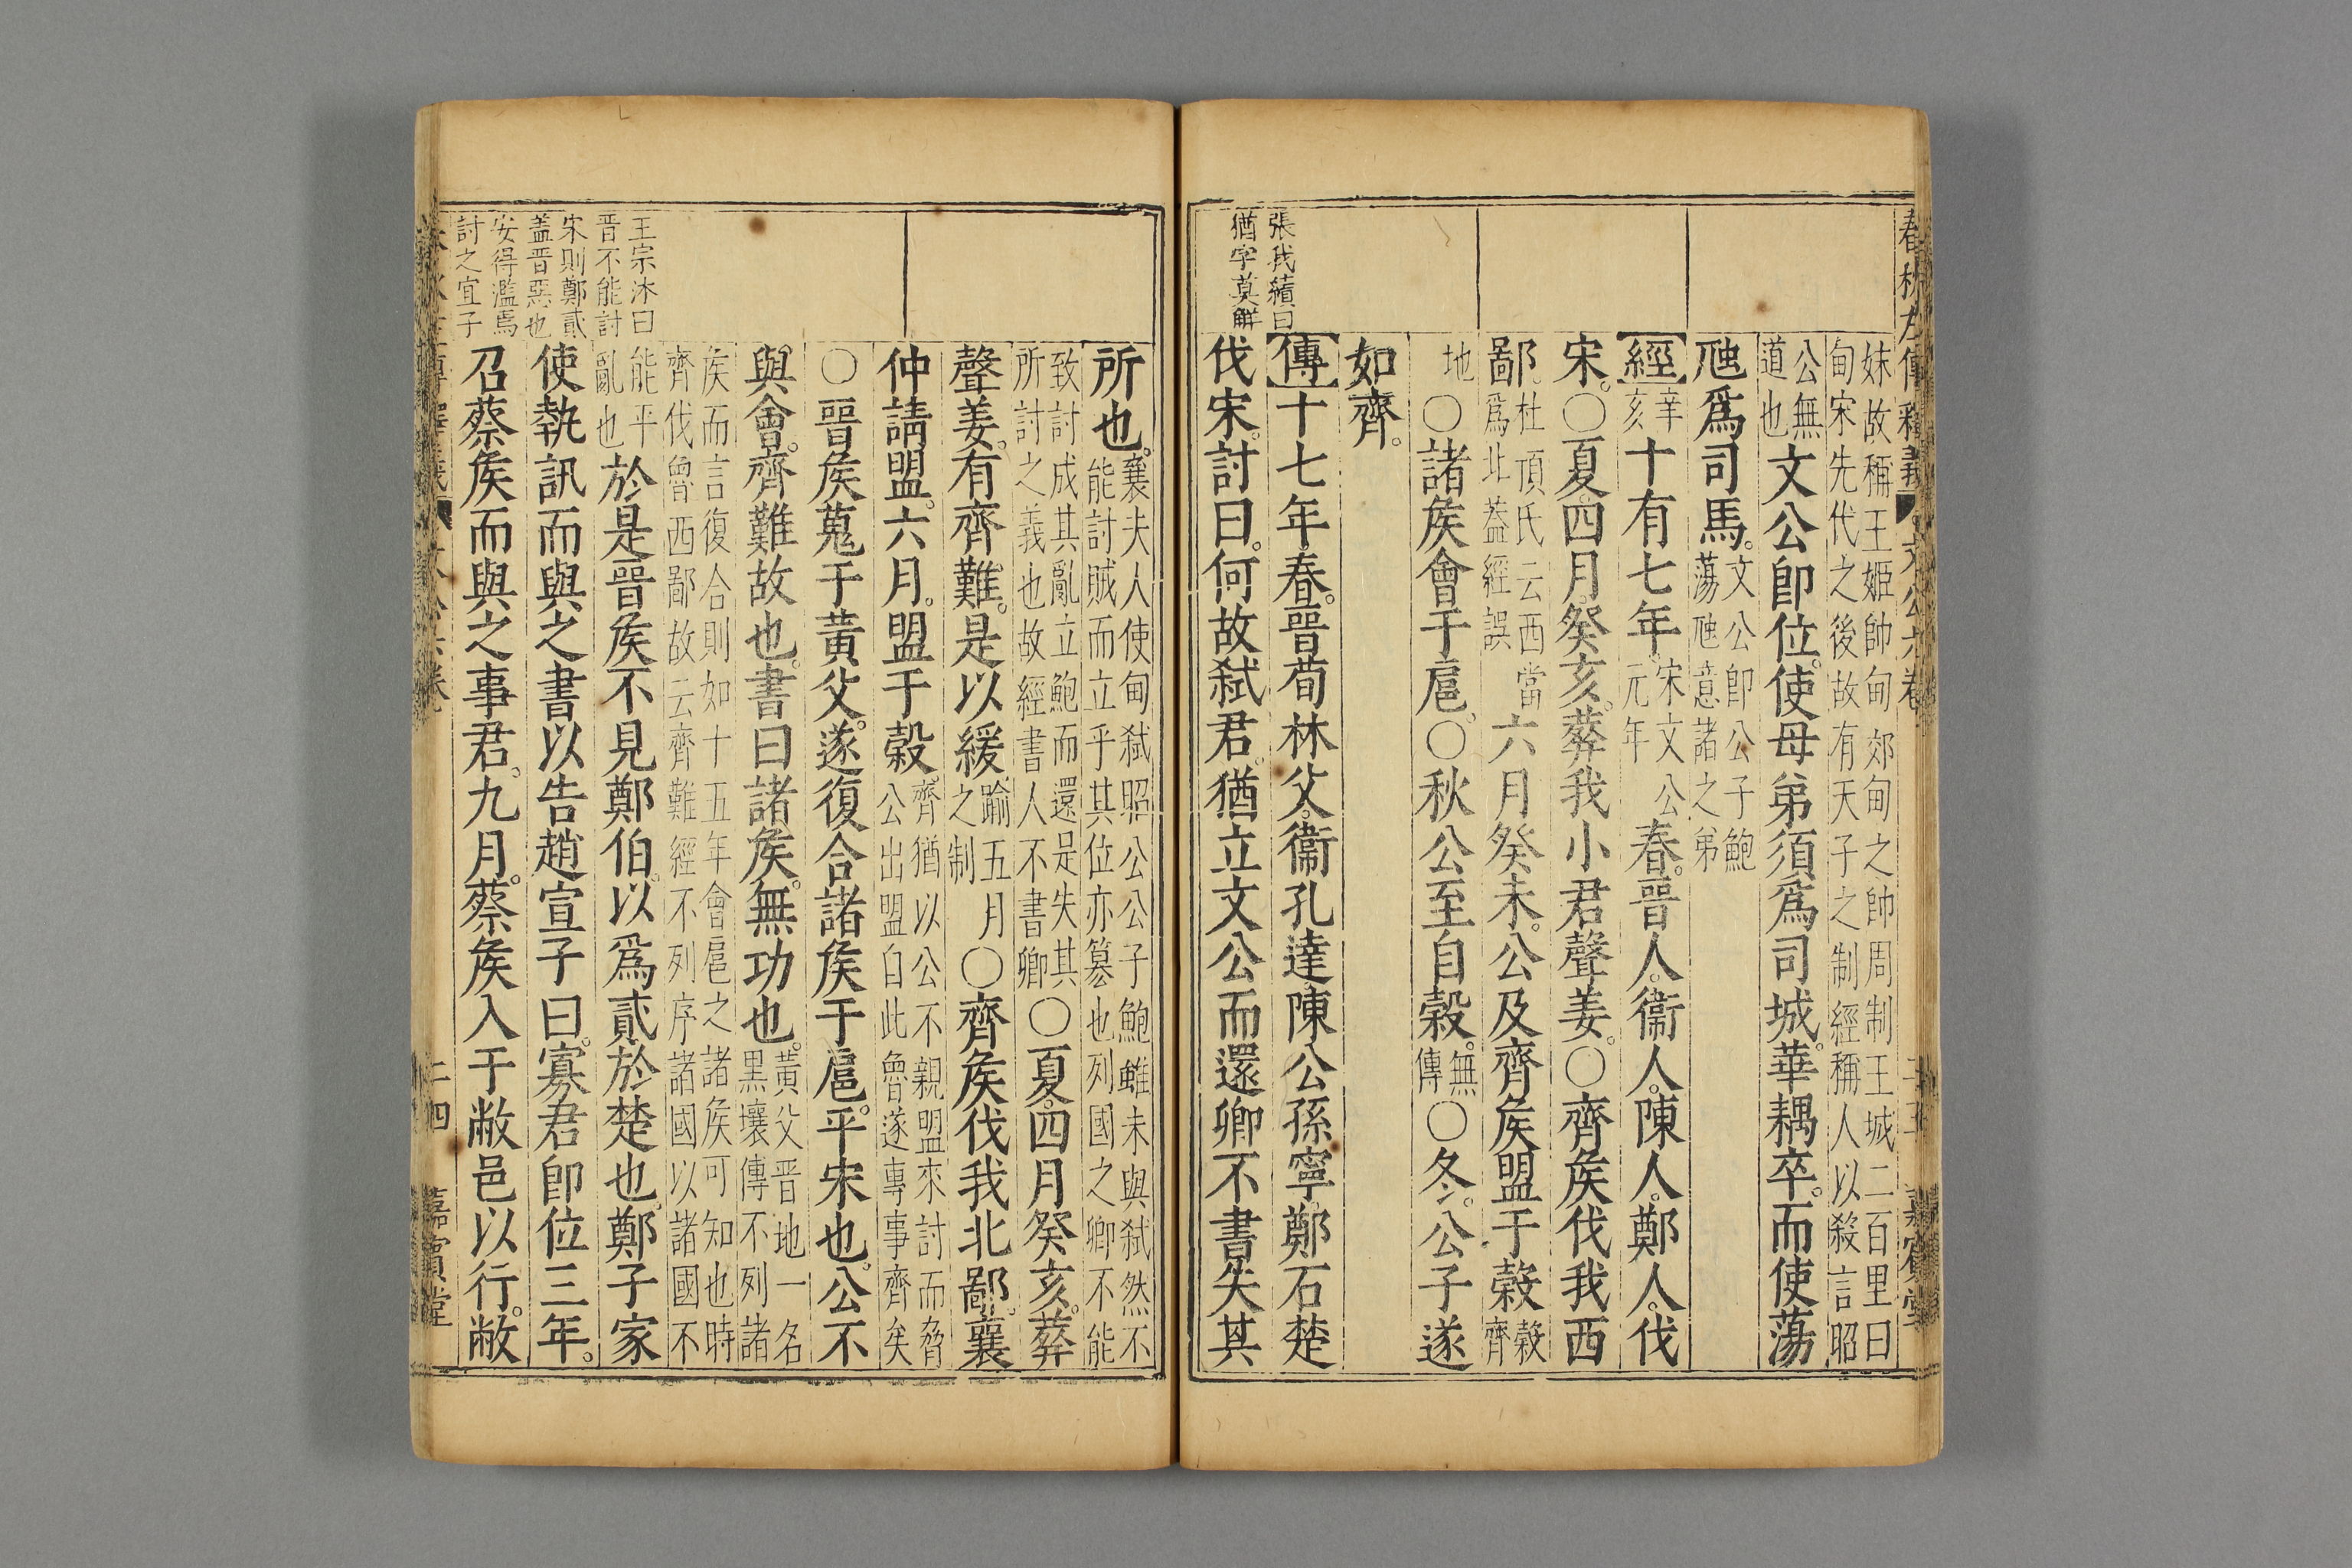 春秋左傳釋義
文公六卷
嘉賓堂
妹故稱王姬帥甸郊甸之帥周制王城二百里曰
甸宋先代之後故有天子之制經稱人以殺言昭
公無
道也
文公卽位使母弟須爲司城華耦卒而使蕩
虺爲司馬
文公卽公子鮑
蕩虺意諸之弟
經
辛
亥
十有七年
宋文公
元年
春晉人衞人陳人鄭人伐
宋○夏四月癸亥葬我小君聲姜○齊矦伐我西
鄙
杜頂氏云西當
爲北蓋經誤
六月癸未公及齊矦盟于穀
穀
齊
地
○諸矦會于扈○秋公至自穀
無
傳
○冬公子遂
如齊
傳十七年春晉荀林父衞孔達陳公孫寧鄭石楚
伐宋討曰何故弑君猶立文公而還卿不書失其
張我績曰
猶字莫解
所也
襄夫人使甸弑昭公公子鮑雖未與弑然不
能討賊而立乎其位亦簒也列國之卿不能
致討成其亂立鮑而還是失其
所討之義也故經書人不書卿
○夏四月癸亥葬
聲姜有齊難是以緩
踰五月
之制
○齊矦伐我北鄙襄
仲請盟六月盟于穀
齊猶以公不親盟來討而脅
公出盟自此魯遂專事齊矣
○晉矦蒐于黃父遂復合諸矦于扈平宋也公不
與會齊難故也書曰諸矦無功也
黃父晉地一名
黑壤傳不列諸
矦而言復合則如十五年會扈之諸矦可知也時
齊伐魯西鄙故云齊難經不列序諸國以諸國不
能平
亂也
於是晉矦不見鄭伯以爲貳於楚也鄭子家
使執訊而與之書以告趙宣子曰寡君卽位三年
召蔡矦而與之事君九月蔡矦入于敝邑以行敝
王宗沐曰
晉不能討
宋則鄭貳
蓋晉惡也
安得濫焉
討之宜子
二四
嘉賓堂